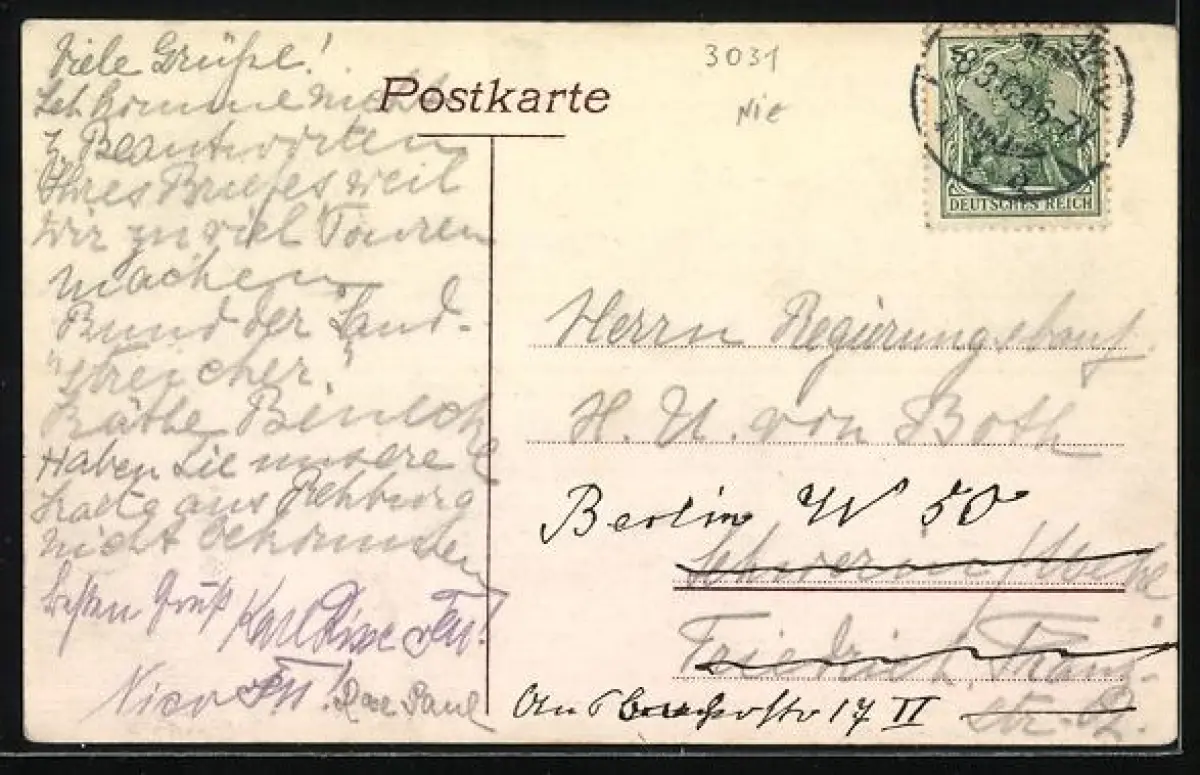 Viele Grüße!
Ich komme nicht
z. Beantworten
Ihres Briefes weil
wir zu viel Touren
machen
Bund der Land-
"streicher."
Käthe
Haben Sie unsere
Karte aus Rehburg
nicht bekommen
Besten Gruß Karl
Nico Paul
Postkarte
3031
Nie
DEUTSCHES REICH
Herrn Regierungsbauf
H. U. von Both
Berlin W 50
Schwerin
Friedrich Franz-
17 II str.